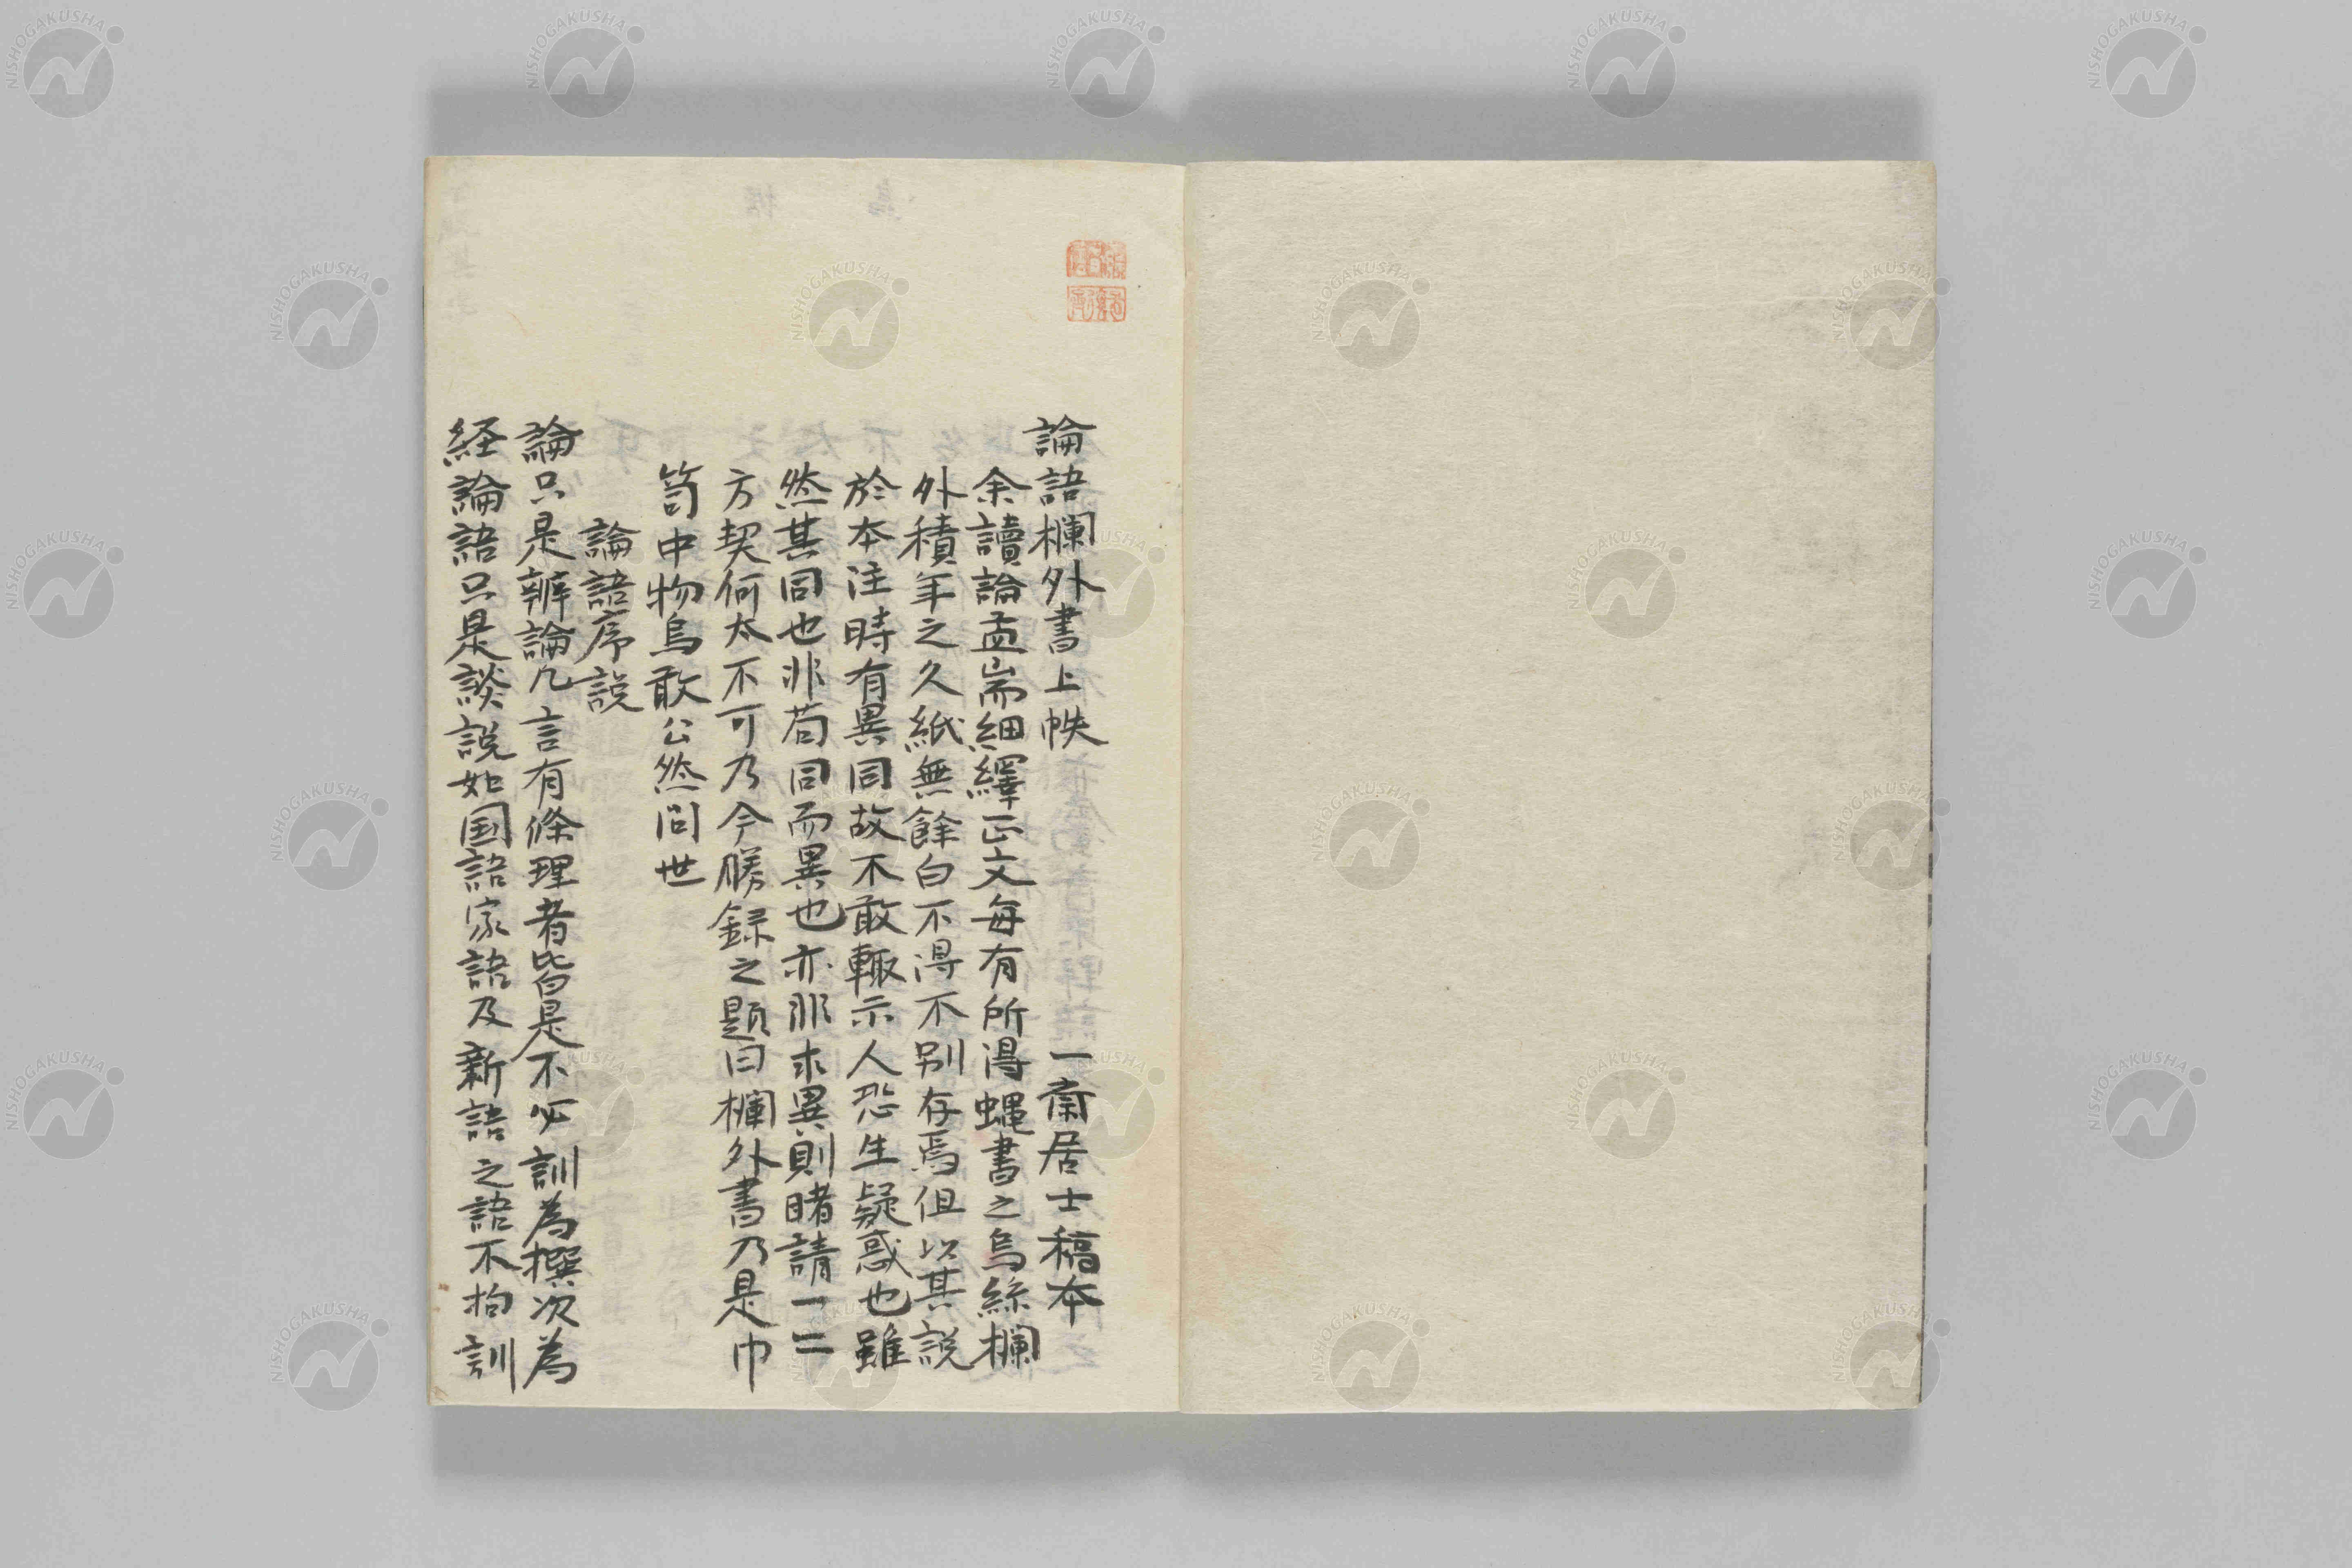 論語欄外書上帙 一齋居士稿本
余讀論孟耑細繹正文每有所得蠅書之烏絲欄
外積年之久紙無餘白不得不別存焉但以其説
於本注時有異同故不敢輙示人恐生疑惑也雖
然其同也非苟同而異也亦非求異則睹請一二
方契何太不可乃今謄録之題曰欄外書乃是巾
笥中物烏敢公然問世
論語序説
論只是辨論凡言有條理者皆是不必訓為撰次為
経論語只是談説如国語家語及新語之語不拘訓
NISHOGAKUSHA